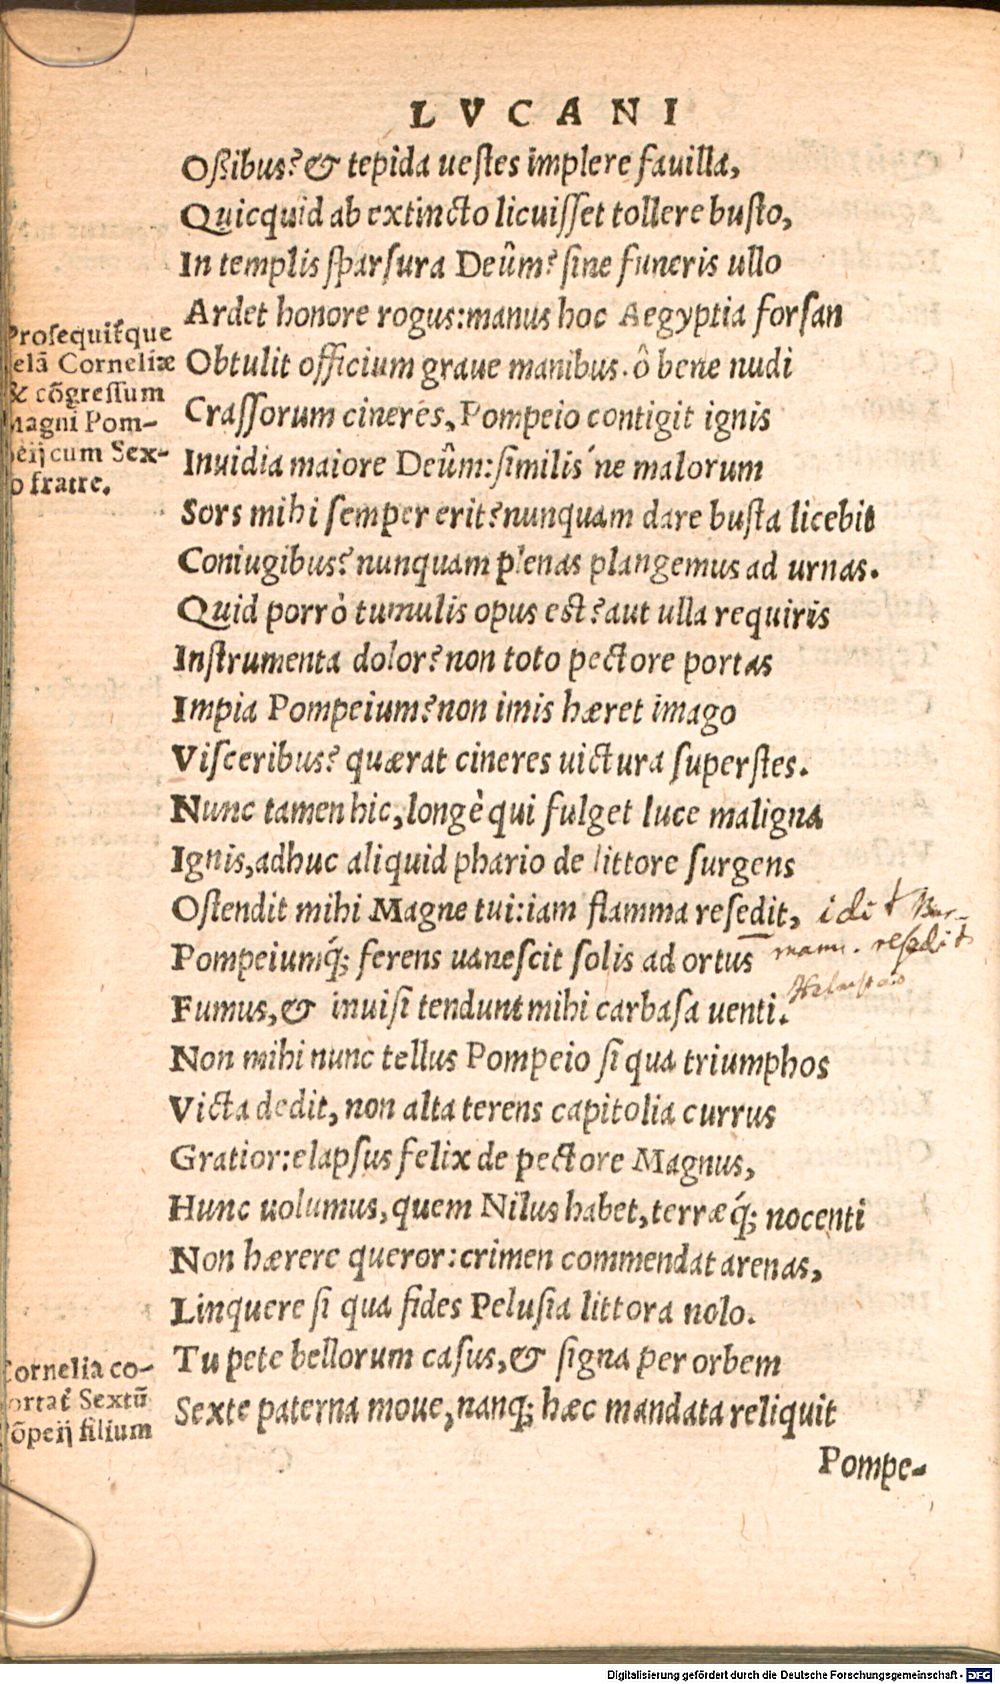 LVCANI
Oſsibus? & tepida ueſtes implere fauilla,
Quicquid ab extincto licuiſſet tollere buſto,
In templis ſparſura Deûm? ſine funeris ullo
Ardet honore rogus: manus hoc Aegyptia forſan
Obtulit officium graue manibus. ô bene nudi
Craſſorum cineres, Pompeio contigit ignis
Inuidia maiore Deûm: ſimilis´ne malorum
Sors mihi ſemper erit? nunquam dare buſta licebit
Coniugibus? nunquam plenas plangemus ad urnas.
Quid porrò tumulis opus est? aut ulla requiris
Inſtrumenta dolor? non toto pectore portas
Impia Pompeium? non imis hæret imago
Viſceribus? quærat cineres uictura ſuperſtes.
Nunc tamen hic, longè qui fulget luce maligna
Ignis, adhuc aliquid phario de littore ſurgens
Oſtendit mihi Magne tui: iam flamma reſedit,
Pompeiumq́; ferens uaneſcit ſolis ad ortus
Fumus, & inuiſi tendunt mihi carbaſa uenti.
Non mihi nunc tellus Pompeio ſi qua triumphos
Victa dedit, non alta terens capitolia currus
Gratior: elapſus felix de pectore Magnus,
Hunc uolumus, quem Nilus habet, terræq́; nocenti
Non hærere queror: crimen commendat arenas,
Linquere ſi qua fides Peluſia littora nolo.
Tu pete bellorum caſus, & ſigna per orbem
Sexte paterna moue, nanq; hæc mandata reliquit
Pompe-
Proſequit᷑que
telā Corneliæ
& cōgreſſum
Magni Pom-
peij cum Sex-
o fratre.
Cornelia co-
ortat᷑ Sextū
ōpeij filium
reſedit
Digitalisierung gefördert durch die Deutsche Forschungsgemeinschaft - DFG